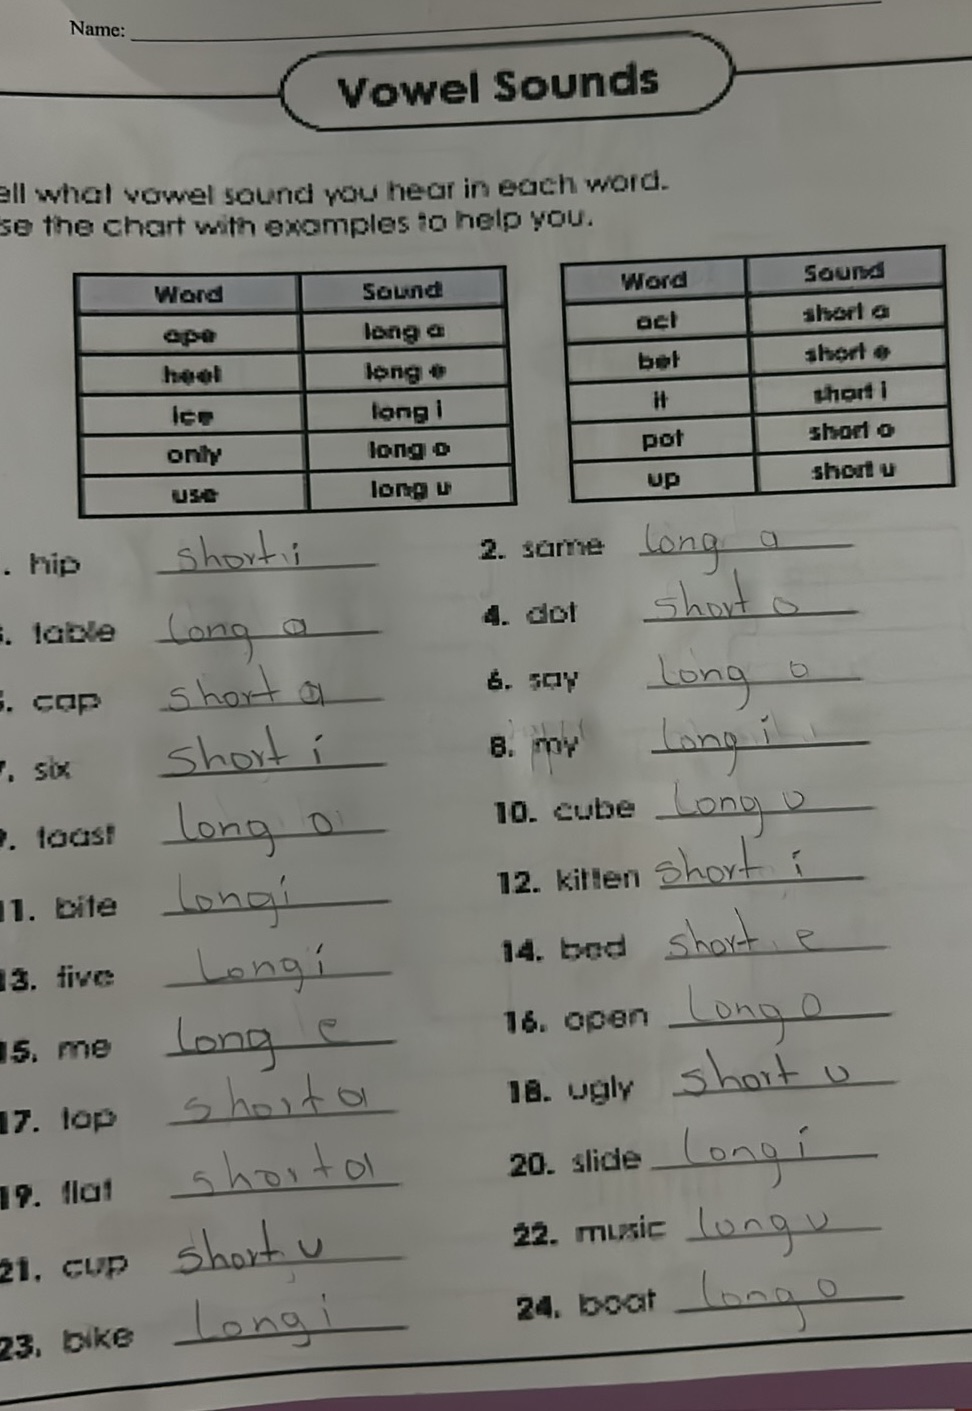 Name:
Vowel Sounds
ell what vowel sound you hear in each word.
se the chart with examples to help you.
Word Sound
ape long a
heel long e
ice long i
only long o
use long u
Word Sound
act short a
bet short e
it short i
pot short o
up short u
. hip short i
2. same long a
. table long a
4. dot short o
. cap short a
6. say long o
. six short i
8. my long i
. toast long o
10. cube long u
11. bite long i
12. kitten short i
13. five long i
14. bed short e
15. me long e
16. open long o
17. tap short a
18. ugly short u
19. flat short a
20. slide long i
21. cup short u
22. music long u
23. bike long i
24. boat long o